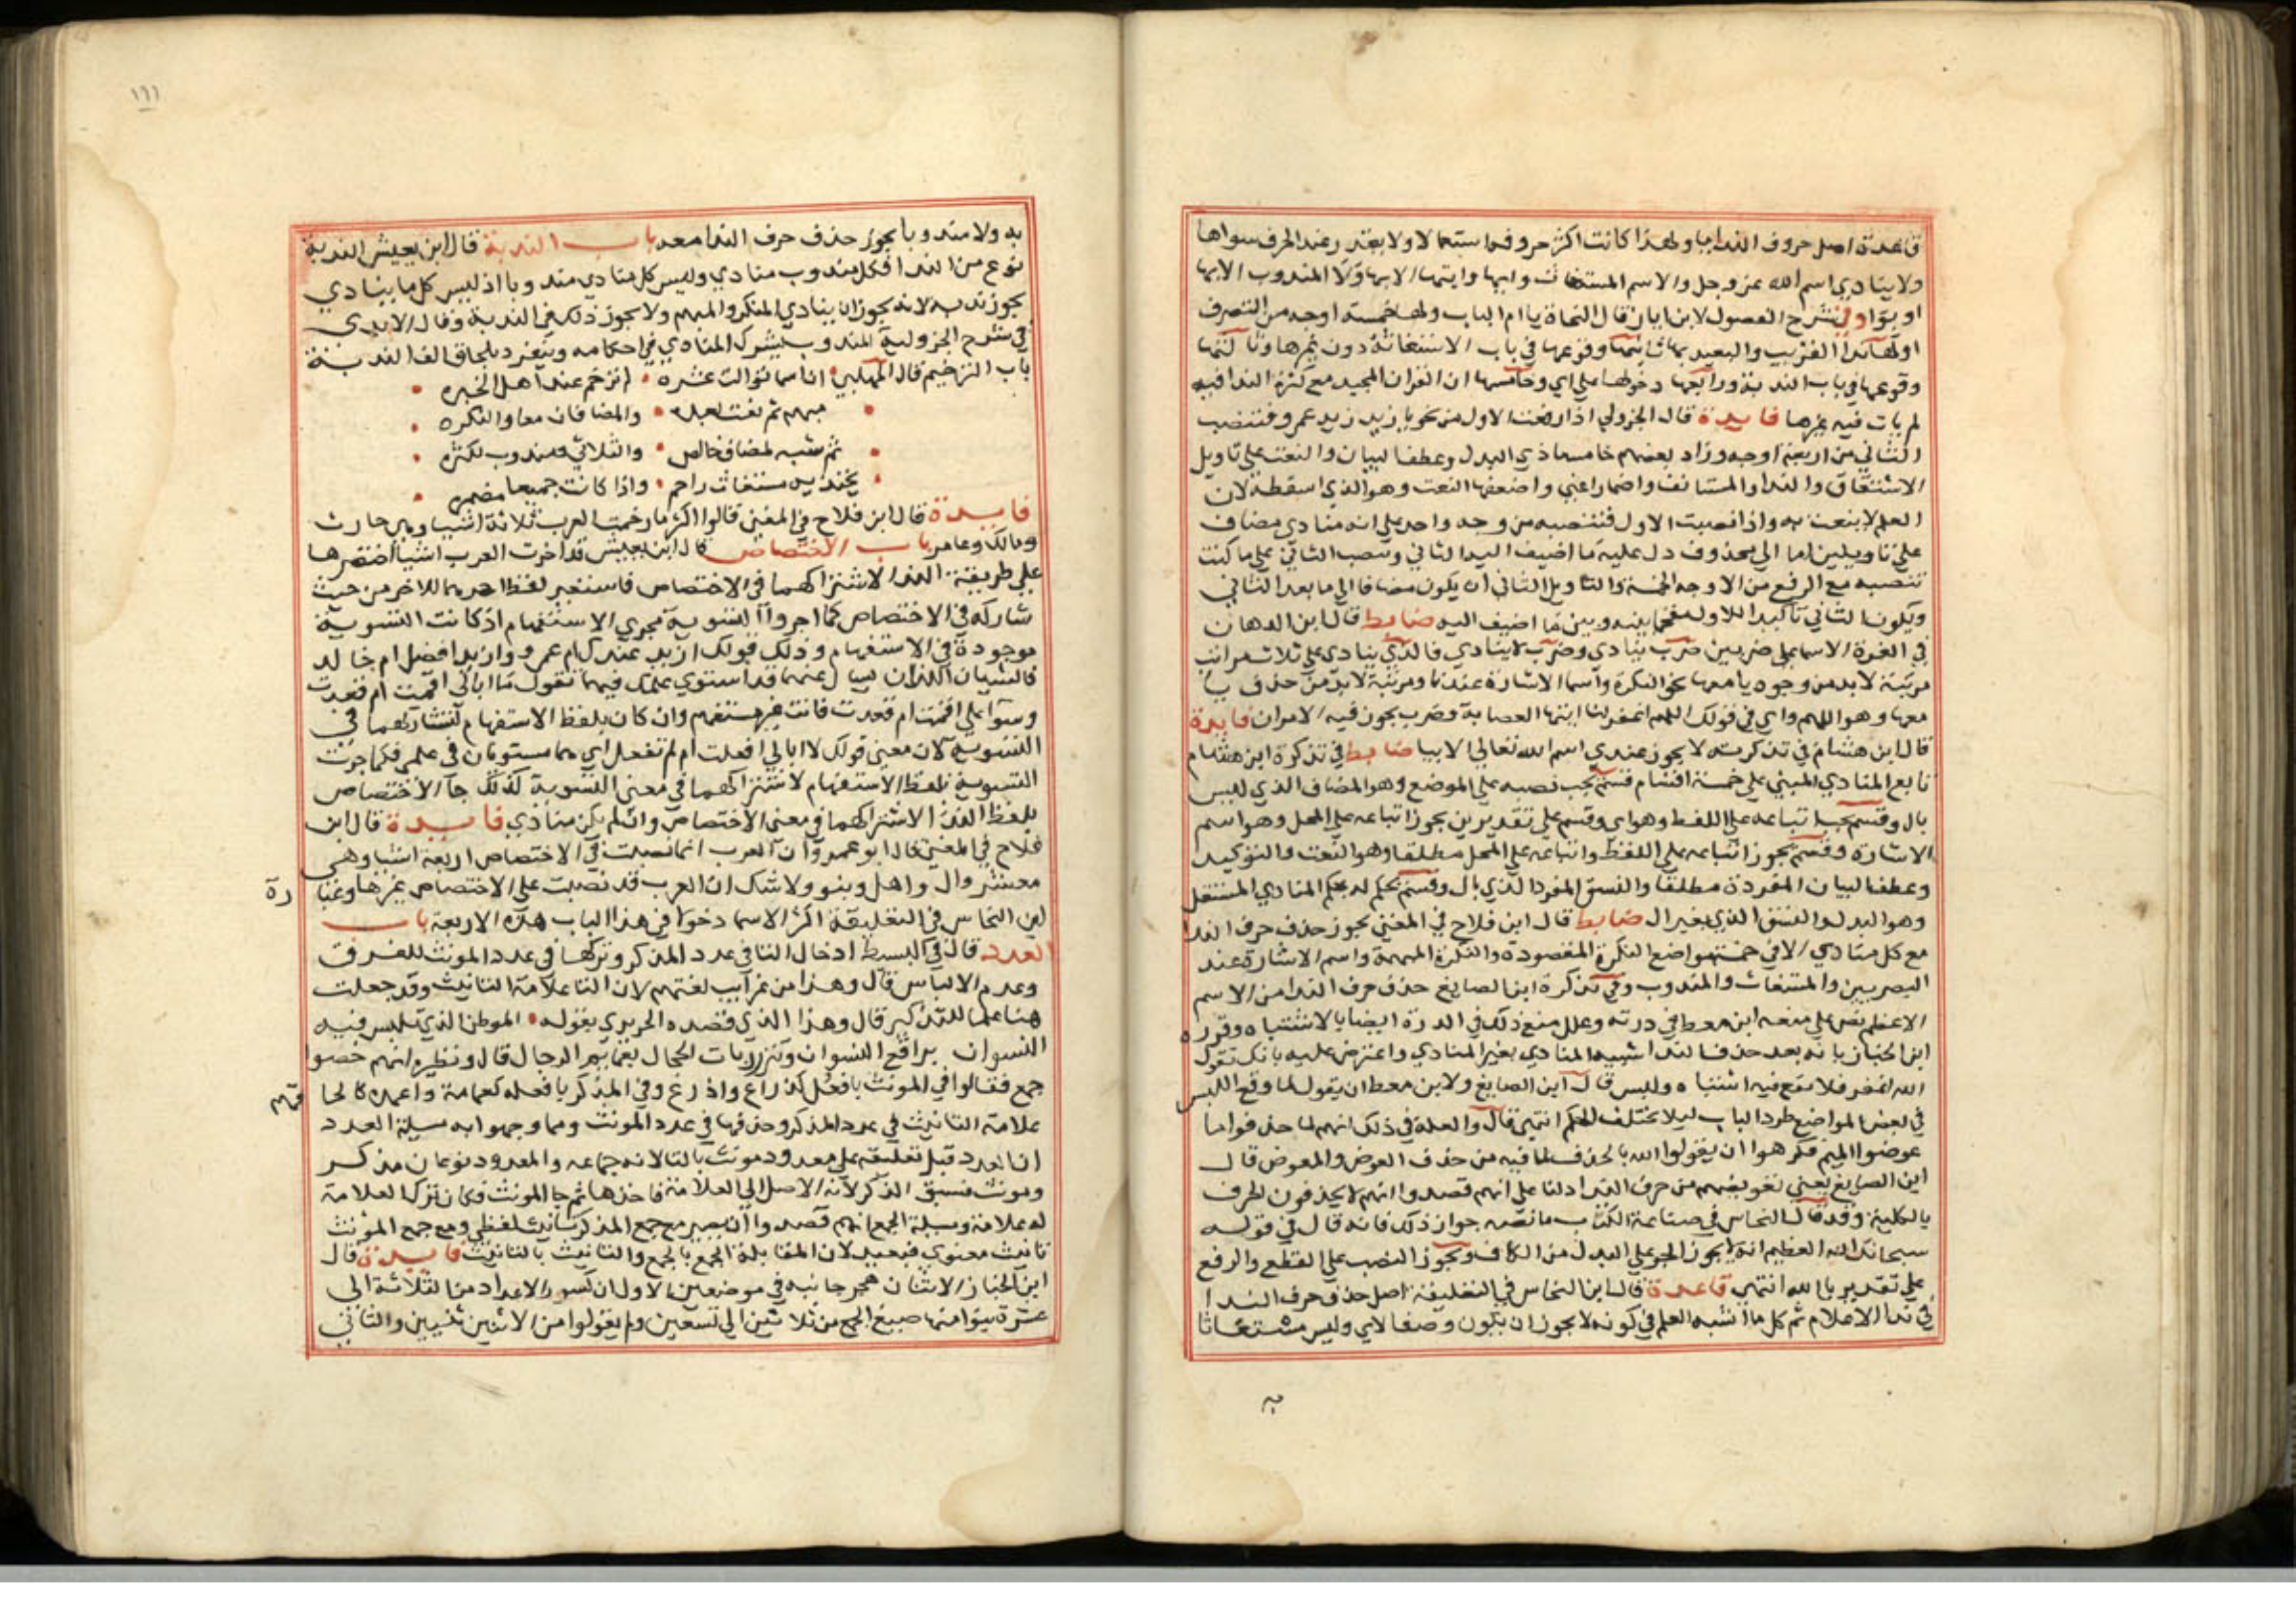 قاعدة اصل حروف الندا يا ولهذا كانت اكثر حروفها استعمالا ولا يقدر عند الحرف سواها
ولا ينادي اسم الله عز وجل والاسم المستغاث وايها وايتها الا بها ولا المندوب الا بها
او بوا وفي شرح الفصول لابن اياز قال النحاة يا ام الباب ولها خمسة اوجه من التصرف
اولها ندا القريب والبعيد بها ثانيها وقوعها في باب الاستغاثة دون غيرها وثالثها
وقوعها في باب الندبة ورابعها دخولها على اي وخامسها ان القران المجيد مع كثرة الندا فيه
لم يات فيه غيرها فايدة قال الجزولي اذا رفعت الاول من نحو يا زيد زيد عمرو فتنصب
الثاني من اربعة اوجه وزاد بعضهم خامسا ذي البدل وعطف البيان والنعت على تاويل
الاشتقاق والندا المستانف واضمار اعني واضعفها النعت وهو الذي اسقطه لان
العلم لا ينعت به واذا نصبت الاول فتنصبه من وجه واحد على انه منادي مضاف
على تاويلين اما الي محذوف دل عليه ما اضيف اليه الثاني وتنصب الثاني على ما كنت
تنصبه مع الرفع من الاوجه الخمسة والتاويل الثاني ان يكون مضافا الي ما بعد الثاني
ويكون الثاني تاكيدا للاول مقحما بينه وبين ما اضيف اليه ضابط قال ابن الدهان
في الغرة الاسما على ضربين ضرب ينادي وضرب لا ينادي فالذي ينادى على ثلاث مراتب
مرتبة لابد من وجود يا معها نحو النكرة واسما الاشارة عندنا ومرتبة لابد من حذف يا
معها وهو اللهم واي في قولك اللهم اغفر لنا ايتها العصابة وضرب يجوز فيه الامران فايدة
قال ابن هشام في تذكرته لا يجوز عندي اسم الله تعالى الا بيا ضابط في تذكرة ابن هشام
تابع المنادي المبني على خمسة اقسام قسم يجب نصبه على الموضع وهو المضاف الذي ليس
بال وقسم يجب اتباعه على اللفظ وهو اي وقسم على تقديرين يجوز اتباعه على المحل وهو اسم
الاشارة وقسم يجوز اتباعه على اللفظ واتباعه على المحل مطلقا وهو النعت والتوكيد
وعطف البيان المفردة مطلقا والنسق المفرد الذي بال وقسم يحكم له بحكم المنادي المستقل
وهو البدل والنسق الذي بغير ال ضابط قال ابن فلاح في المغني يجوز حذف حرف الندا
مع كل منادي الا في خمسة مواضع النكرة المقصودة والنكرة المبهمة واسم الاشارة عند
البصريين والمستغاث والمندوب وفي تذكرة ابن الصايغ حذف حرف الندا من الاسم
الاعظم نص على منعه ابن معط في درته وعلل منع ذلك في الدرة ايضا بالاشتباه وقرره
ابن الخباز بانه بعد حذف الندا اشبه المنادي بغير المنادي واعترض عليه بانك تقول
الله اغفر فلا يقع فيه اشتباه وليس قال ابن الصايغ ولابن معط ان يقول لما وقع اللبس
في بعض المواضع طرد الباب ليلا يختلف الحكم انتهى قال والعلة في ذلك انهم لما حذفوا يا
عوضوا الميم فكرهوا ان يقولوا الله بالحذف لما فيه من حذف العوض والمعوض قال
ابن الصايغ يعني تعويضهم من حرف الندا دلنا على انهم قصدوا انهم لا يحذفون الحرف
بالكلية وقد قال النحاس في صناعة الكتاب ما نصه جواز ذلك فانه قال في قوله
سبحانك الله العظيم انه يجوز الجر على البدل من الكاف ويجوز النصب على القطع والرفع
على تقدير يا الله انتهى قاعدة قال ابن النحاس في التعليقة اصل حذف حرف الندا
في ندا الاعلام ثم كل ما اشبه العلم في كونه لا يجوز ان يكون وصفا لاي وليس مستغاثا
به
١٦١
به ولا مندوبا يجوز حذف حرف الندا معه باب الندبة قال ابن يعيش الندبة
نوع من الندا فكل مندوب منادي وليس كل منادي مندوبا اذ ليس كل ما ينادي
يجوز ندبه لانه يجوز ان ينادي المنكر والمبهم ولا يجوز ذلك في الندبة وقال الابدي
في شرح الجزولية المندوب يشرك المنادي في احكامه وينفرد بالحاق الف الندبة
باب الترخيم قال المهلبي ان اسما توالت عشره لم ترخم عند اهل الخبره
مبهم ثم نعت بعده والمضافان معا والنكره
ثم شبه لمضاف خالص والثلاثي ومندوب لكثره
مستغاث راحم واذا كانت جميعا مضمره
فايدة قال ابن فلاح في المغني قالوا اكثر ما رخمت العرب ثلاثة اشيا وهي حارث
ومالك وعامر باب الاختصاص قال ابن يعيش قد اخرت العرب اشيا اختصرها
على طريقة الندا لاشتراكهما في الاختصاص فاستعير لفظ احدهما للاخر من حيث
شاركه في الاختصاص كما اجروا التسوية مجري الاستفهام اذ كانت التسوية
موجودة في الاستفهام وذلك قولك ازيد عندك ام عمرو وازيد افضل ام خالد
فالشيان اللذان يسال عنهما قد استوي علمك فيهما تقول ما ابالي اقمت ام قعدت
وسوا علي اقمت ام قعدت فانت غير مستفهم وان كان بلفظ الاستفهام لتشاركهما في
التسوية لان معني قولك لا ابالي افعلت ام لم تفعل اي هما مستويان في علمي فكما جرت
التسوية بلفظ الاستفهام لاشتراكهما في معني التسوية كذلك جا الاختصاص
بلفظ الندا لاشتراكهما في معني الاختصاص وان لم يكن منادي فايدة قال ابن
فلاح في المغني قال ابو عمرو ان العرب انما نصبت في الاختصاص اربعة اشيا وهي
معشر وال واهل وبنو ولا شك ان العرب قد نصبت على الاختصاص غيرها وعبا
رة
ابن النحاس في التعليقة اكثر الاسما دخولا في هذا الباب هذه الاربعة باب
العدد قال في البسيط ادخال التا في عدد المذكر وتركها في عدد المونث للفرق
وعدم الالباس قال وهذا من غرايب لغتهم لان التا علامة التانيث وقد جعلت
هنا علما للتذكير قال وهذا الذي قصده الحريري بقوله الموطن الذي تلبس فيه
النسوان براقع النسوان وتبرز ربات الحجال بعمايم الرجال قال ونظيره انهم خصوا
جمع فعال في المونث بافعل كذراع واذرع وفي المذكر بافعله كعمامة واعمده كالحا
قهم
علامة التانيث في عدد المذكر وحذفها في عدد المونث ومما وجهوا به مسيلة العدد
ان العدد قبل تعليقه على معدود مونث بالتا لانه جماعه والمعدود نوعان مذكر
ومونث فسبق المذكر لانه الاصل الي العلامة فاخذها ثم جا المونث فكان ترك العلامة
له علامة ومسيلة الجمع انهم قصدوا ان يصير مع جمع المذكر تانيث لفظي ومع جمع المونث
تانيث معنوي فبعيد لان المقابلة الجمع بالجمع والتانيث بالتانيث فايدة قال
ابن الخباز الاثنان هجر جانبه في موضعين الاول ان كسور الاعداد من الثلاثة الي
عشرة بنوا منها صيغ الجمع من ثلاثين الي تسعين ولم يقولوا من الاثنين ثنيين والثاني